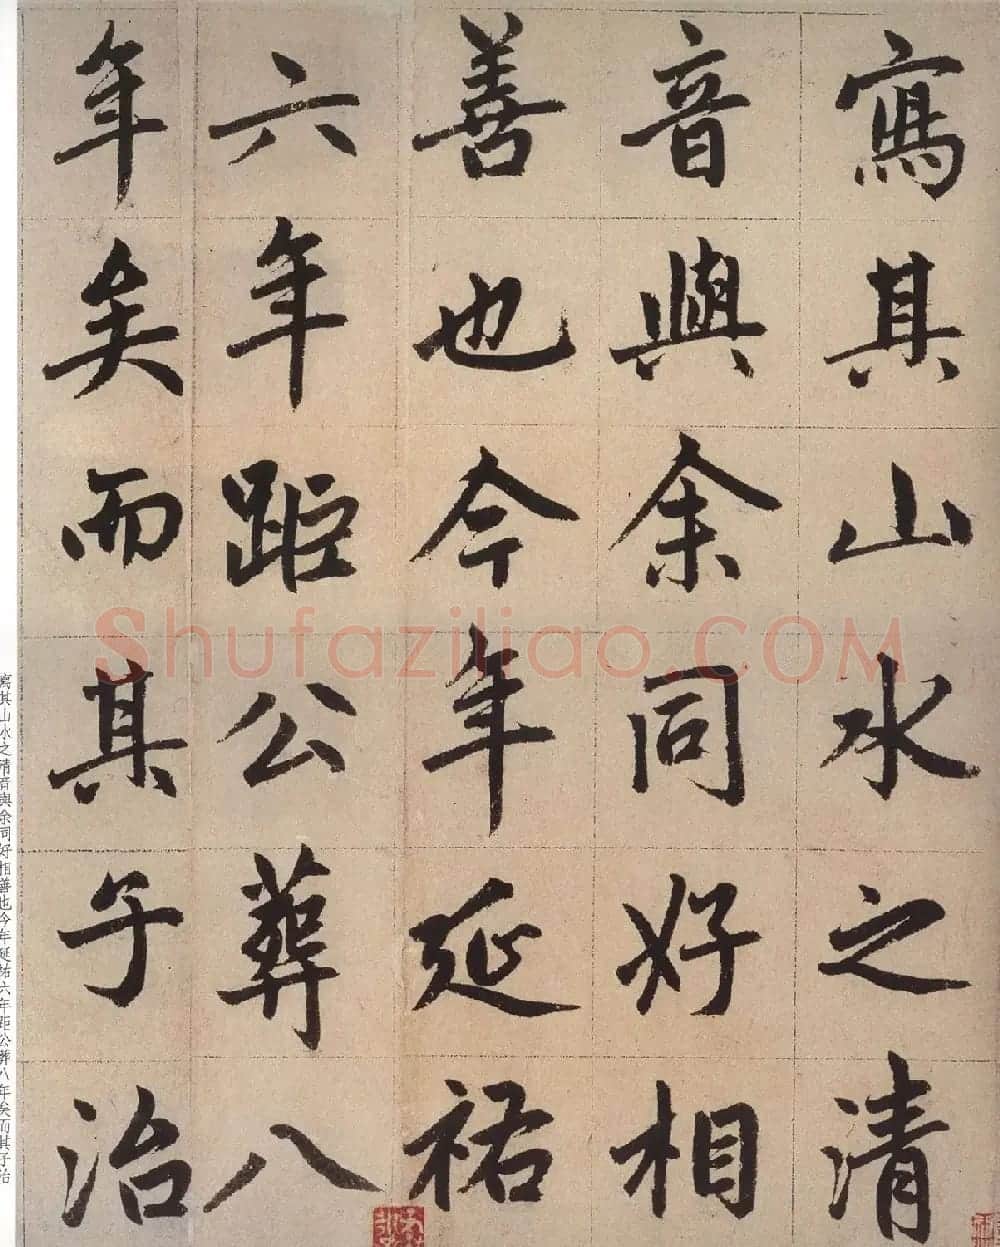 寫其山水之清
音與余同好相
善也今年延祐
六年距公葬八
年矣而其子治
寫其山水之清音與余同好相善也今年延祐六年距公葬八年矣而其子治
Shufaziliao.COM